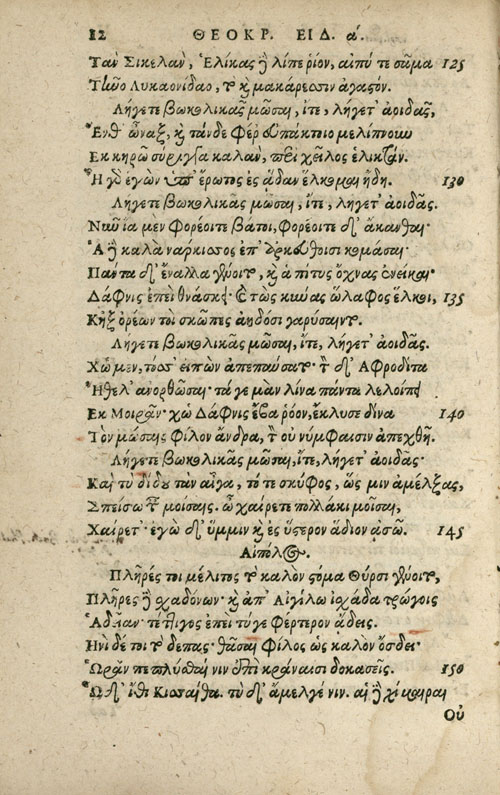 12 ΘΕΟΚΡ. ΕΙΔ. ά.
Τὰν Σικελὰν, Ἑλίκας ἢ λίπε ῥίον, αἰπύ τε σῶμα 125
Τῆνο Λυκαονίδαο, τὸ καὶ μακάρεσσιν ἀγαστόν.
Λήγετε βωκολικᾶς μῶσαι, ἴτε, λήγετ' ἀοιδᾶς,
Ἔνθ' ὦναξ, καὶ τάνδε φέρ' εὐπάκτοιο μελίπνουν
Ἐκ κηρῶ σύριγγα καλὰν, περὶ χεῖλος ἑλικτάν.
Ἦ γὸ ἐγὼν ὑπ' ἔρωτος ἐς ᾅδαν ἕλκομαι ἤδη. 130
Λήγετε βωκολικᾶς μῶσαι, ἴτε, ληγετ' ἀοιδᾶς.
Νῦν ἴα μὲν φορέοιτε βάτοι, φορέοιτε δ' ἄκανθαι·
Ἁ δὲ καλὰ νάρκισσος ἐπ' ἀρκεύθοισι κομάσαι·
Πάντα δ' ἔναλλα γένοιτο, καὶ ἁ πίτυς ὄχνας ἐνείκαι·
Δάφνις ἐπεὶ θνάσκει· καὶ τὼς κύνας ὥλαφος ἕλκοι, 135
Κἠξ ὀρέων τοὶ σκῶπες ἀηδόσι γαρύσαιντο.
Λήγετε βωκολικᾶς μῶσαι, ἴτε, λήγετ' ἀοιδᾶς.
Χὠ μὲν, τόσσ' εἰπὼν ἀπεπαύσατο· τὸν δ' Ἀφροδίτα
Ἤθελ' ἀνορθῶσαι· τά γε μὰν λίνα πάντα λελοίπει
Ἐκ Μοιρᾶν· χὠ Δάφνις ἔβα ῥόον, ἔκλυσε δίνα 140
Τὸν μώσαις φίλον ἄνδρα, τὸν οὐ νύμφαισιν ἀπεχθῆ.
Λήγετε βωκολικᾶς μῶσαι, ἴτε, λήγετ' ἀοιδᾶς·
Καὶ τὺ δίδου τὰν αἶγα, τό τε σκύφος, ὥς μιν ἀμέλξας,
Σπείσω ταῖς μοίσαις. ὦ χαίρετε πολλάκι μοῖσαι,
Χαίρετ'· ἐγὼ δ' ὕμμιν καὶ ἐς ὕστερον ἅδιον ἀσῶ. 145
Αἰπόλος.
Πλῆρές τοι μέλιτος τὸ καλὸν στόμα Θύρσι γένοιτο,
Πλῆρες δὲ σχαδόνων· καὶ ἀπ' Αἰγίλω ἰσχάδα τρώγοις
Ἁδεῖαν· τέττιγος ἐπεὶ τύ γε φέρτερον ᾄδεις.
Ἠνὶ δέ τοι τὸ δέπας· θᾶσαι φίλος ὡς καλὸν ὄσδει·
Ὡρᾶν πεπλύσθαί νιν ἐπὶ κράναισι δοκασεῖς. 150
Ὧδ' ἴθι Κισσαίθα. τὺ δ' ἄμελγέ νιν. αἱ δὲ χίμαιραι
Οὐ